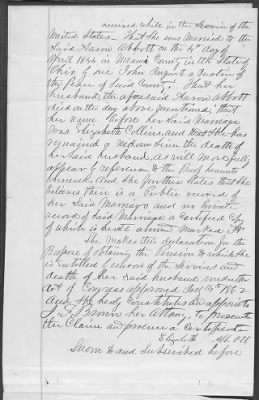 received while in the Service of the
United States. That she was married to the
Said Aaron Abbott on the 4th day of
April 1844 in Miami County in the State of
Ohio by one John
of the peace of Said County. That her
husband, the aforesaid Aaron Abbott
died on the day above mentioned, that
her name before her Said Marriage
was Elizabeth Collins, and that she has
remained a widow since the death of
her Said husband, as will more fully
appear by reference to the Proof herewith
annexed. And She further States that She
believes there is a Public record of
her Said Marriage and no
record of Said Marriage a Certified Copy
of which is hereto annexed Marked A
She makes this declaration for the
Purpose of obtaining the Pension to which she
is entitled by reason of the Services and
death of her Said husband under the
Act of Congress approved July 14th 1862
And She hereby Constitutes and appoints
J. F. Brown her Attorney, to prosecute
the Claim and procure a Certificate
Elizabeth Abbott
Sworn to and Subscribed before